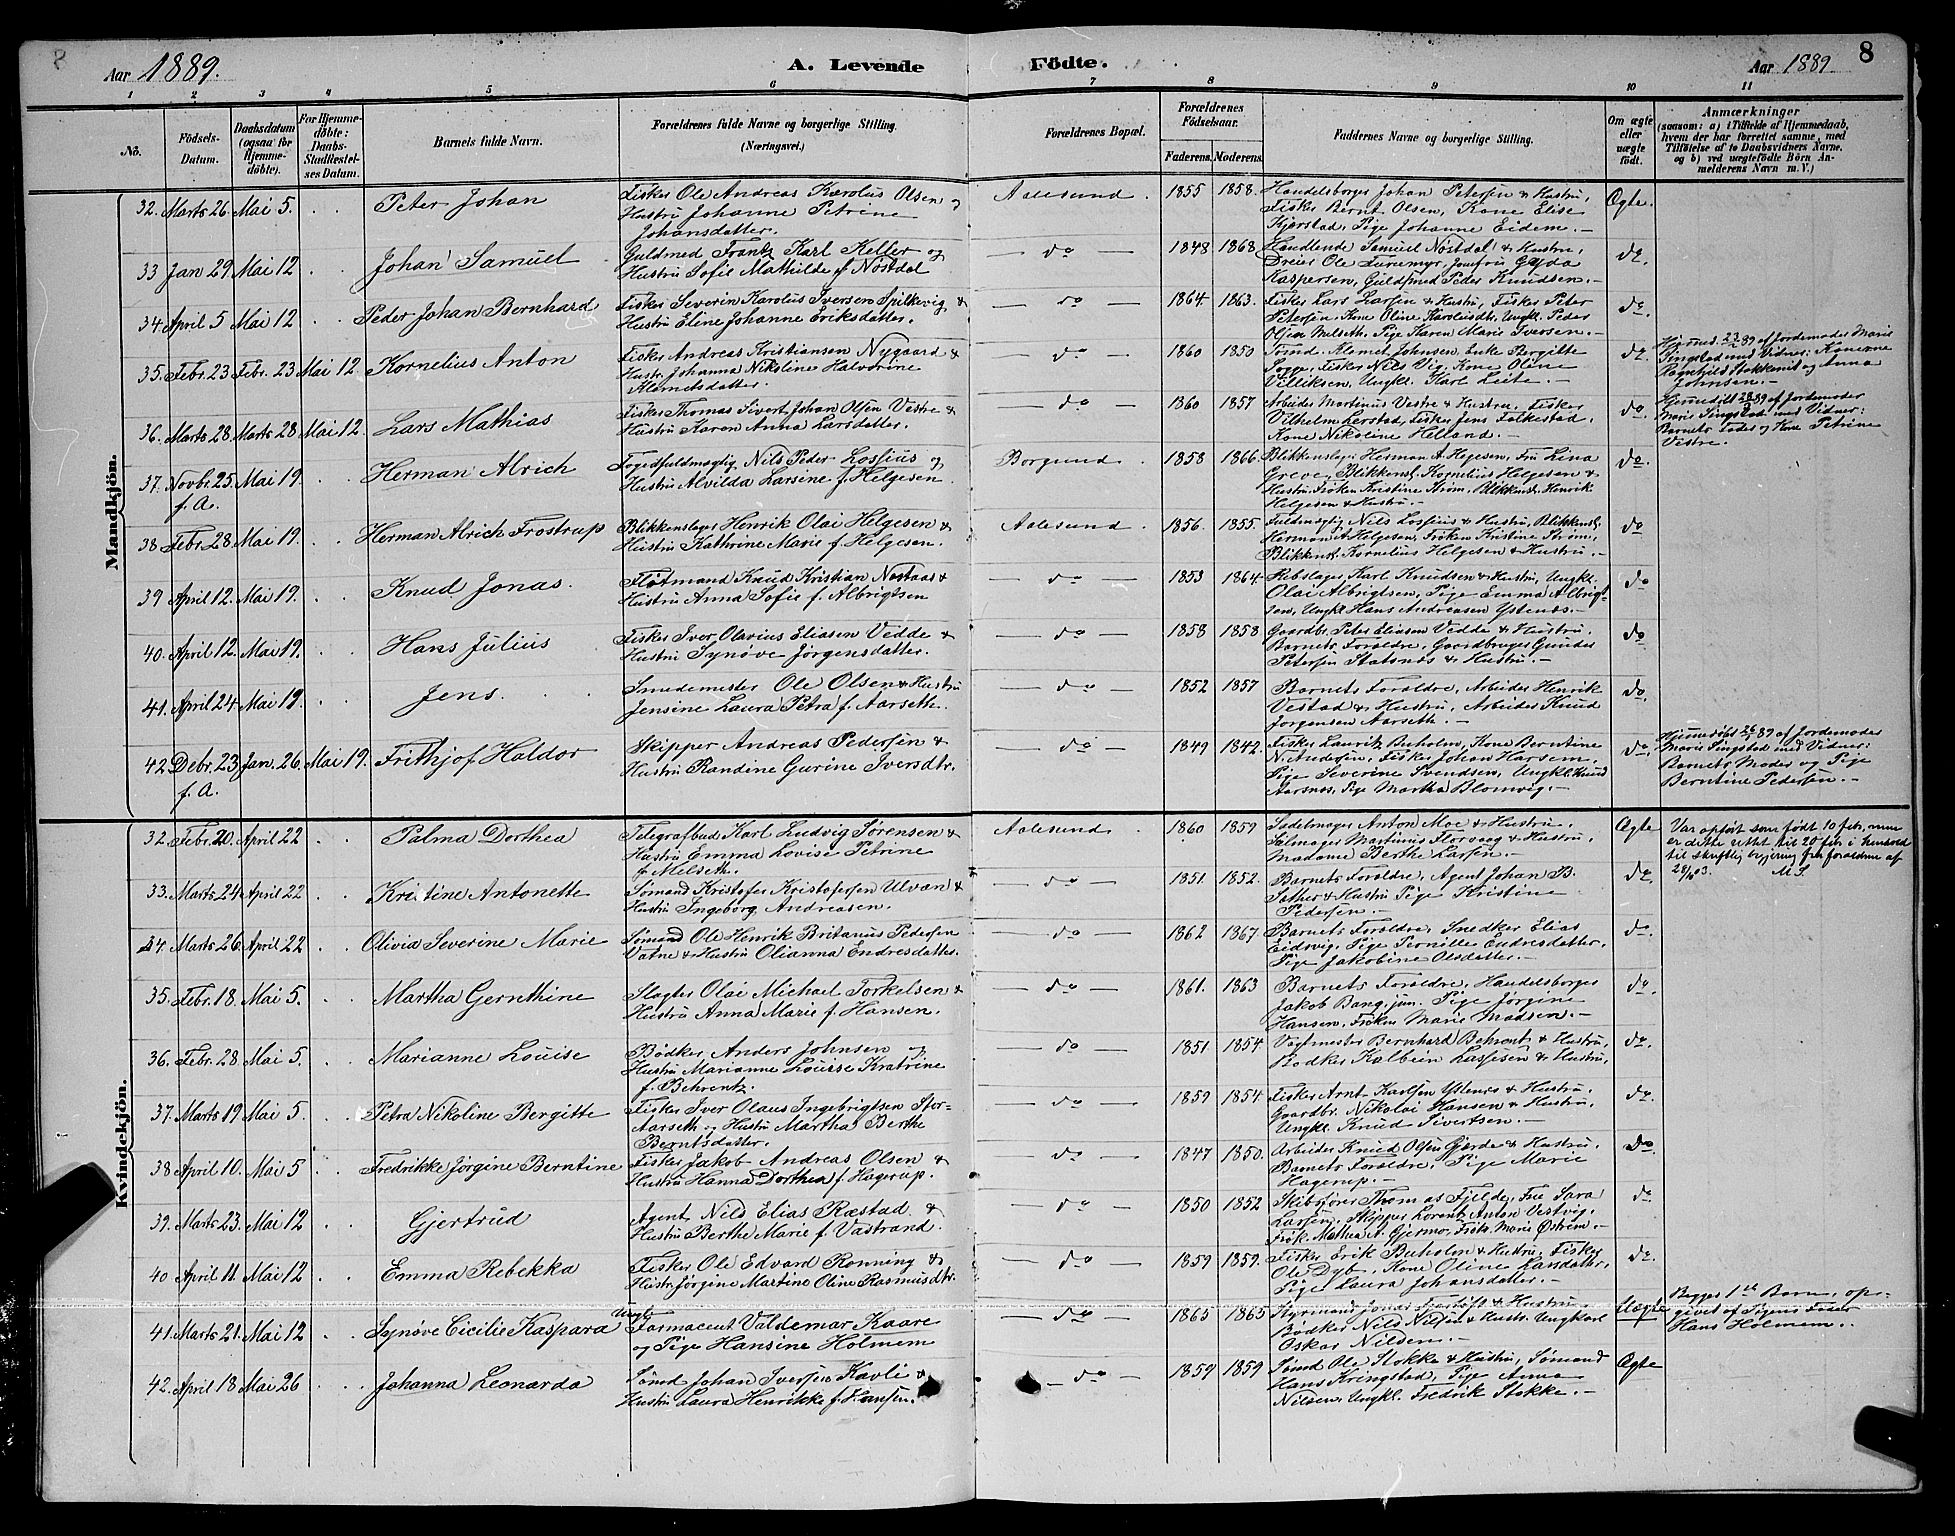 Aar 1889. A. Levende Födte. Aar 1889. 8
1 2 3 4 5 6 7 8 9 10 11
No.
Födsels-
Datum.
Daabsdatum
(ogsaa for
Hjemme-
döbte).
For Hjemme-
döbte:
Daabs-
Stadfæstel-
ses Datum.
Barnets fulde Navn.
Forældrenes fulde Navne og borgerlige Stilling.
(Næringsvei.)
Forældrenes Bopæl.
Forældrenes
Födselsaar.
Faderens. Moderens.
Faddernes Navne og borgerlige Stilling.
Om ægte
eller
uægte
födt.
Anmærkninger
(saasom: a) i Tilfælde af Hjemmedaab,
hvem der har forrettet samme, med
Tilföielse af to Daabsvidners Navne,
og b) ved uægtefödte Börn An-
melderens Navn m. V.)
Mandkjön.
32. Marts 26. Mai 5. Peter Johan
Fisker Ole Andreas Karolus Olsen og
Hustru Johanne Petrene
Johansdatter.
Aalesund. 1855 1858.
Handelsborger Johan Petersen & Hustru,
Fisker Bernt Olsen, Kone Elise
Kjørstad, Pige Johanne Eidem.
Ægte.
33 Jan 29. Mai 12 Johan Samuel
Guldsmed Frantz Karl Keller og
Hustru Sofie Mathilde af Nøstdal
do 1848 1868.
Handlende Samuel Nøstdal & Hustru,
Dreier Ole Furemyr, Jomfru Gyda
Kaspersen, Guldsmed Peder Knudsen.
do.
34 April 5 Mai 12 Peder Johan Bernhard
Fisker Severin Karolius Iversen Spilkevig &
Hustru Eline Johanne Eriksdatter.
do 1864. 1863.
Fisker Lars Larsen & Hustru, Fisker Peter
Petersen, Kone Oline Karolusdt., Ungkl. Peder
Olsen Melseth, Pige Karen Marie Iversen.
do.
35. Febr. 23 Febr. 23 Mai 12 Kornelius Anton
Fisker Andreas Kristiansen Nygaard &
Hustr. Johanna Nikoline Halvorine
Klemetsdatter.
do 1860 1850
Tømd. Klemet Johnsen, Enke Bergitte
Sogge, Fisker Nils Vig, Kone Oline
Villiksen, Ungkl. Karl Leite.
do
Hjemmed. 23/2 89 af Jordemoder Marie
Singstad med Vidner: Konerne
Ragnhild Stokkenit og Anna
Johnsen.
36. Marts 28 Marts 28 Mai 12. Lars Mathias
Fisker Thomas Sivert Johan Olsen Vestre &
Hustru Karen Anna Larsdatter.
do 1860 1857
Arbeider Martinus Vestre & Hustru, Fisker
Vilhelm Lerstad, Fisker Jens Falkestad,
Kone Nikoline Helland.
do
Hjemmedøbt 28/3 89 af Jordemoder
Marie Singstad med Vidner:
Barnets Fader og Kone Petrine
Vestre.
37. Novbr. 25. Mai 19. Herman Alrich
f. A.
Fogedfuldmægtig Nils Peder Lossius og
Hustru Alvilda Larsine f. Helgesen
Borgund. 1858 1866.
Blikkenslager Herman A. Helgesen, Fru Lina
Greve, Blikkensl. Kornelius Helgesen &
Hustru, Frøken Kristine Strøm, Blikkensl. Henrik
Helgesen & Hustru.
do
38 Febr. 28 Mai 19. Herman Alrich Frostrup
Blikkenslager Henrik Olai Helgesen &
Hustru Kathrine Marie f. Helgesen.
Aalesund. 1856. 1855.
Fuldmægtig Nils Lossius & Hustru, Blikkensl.
Herman A. Helgesen, Frøken Kristine Strøm,
Blikkensl. Kornelius Helgesen & Hustru.
do
39 April 12. Mai 19. Knud Jonas.
Fløtmand Knud Kristian Nostaas &
Hustru Anna Sofie f. Albrigtsen
do 1853 1864.
Rebslager Karl Knudsen & Hustru, Ungkl.
Olai Albrigtsen, Pige Emma Albrigt-
sen, Ungkl Hans Andreasen Ystenes.
do
40. April 12. Mai 19. Hans Julius
Fisker Iver Olavius Eliasen Vedde &
Hustru Synøve Jørgensdatter.
do 1858 1858
Gaardbr. Peter Eliasen Vedde & Hustru,
Barnets Forældre, Gaardbruger Gunder
Petersen Slatsnæs & Hustru.
do
41. April 24. Mai 19. Jens.
Smedemester Ole Olsen & Hustru
Jensine Laura Petra f. Aarseth.
do 1852 1857
Barnets Forældre, Arbeider Henrik
Vestad & Hustru, Arbeider Knud
Jørgensen Aarseth.
do.
42 Debr. 23 Jan. 26. Mai 19. Frithjof Haldor
f. A.
Skipper Andreas Pedersen &
Hustru Randine Gurine Iversdtr.
do 1849 1842.
Fisker Lauritz Buholm, Kone Berntine
N. Andersen, Fisker Johan Harsem,
Pige Severine Svendsen, Ungkl. Knud
Aarsnes, Pige Martha Blomvig.
do.
Hjemmedøbt 26/1 89 af Jordemoder
Marie Singstad med Vidner:
Barnets Moder og Pige
Berntine Pedersen.
Kvindekjön.
32. Febr. 20. April 22 Palma Dorthea
Telegrafbud Karl Ludvig Sørensen &
Hustru Emma Lovise Petrine
f. Melseth.
Aalesund. 1860 1859
Sadelmager Anton Moe & Hustru,
Salmager Martinus Florvaag & Hustru,
Madame Berthe Larsen.
Ægte
Var opført som født 10 febr, men
er dette rettet til 20 febr i henhold
til skriftlig begjæring fra forældrene af
M.S.
33. Marts 24 April 22 Kristine Antonette
Sømand Kristofer Kristofersen Ulvan &
Hustru Ingeborg Andreasen.
do 1851. 1852.
Barnets Forældre, Agent Johan B.
Sæther & Hustru Pige Kristine
Pedersen.
do
34. Marts 26. April 22 Olivia Severine Marie
Sømand Ole Henrik Britanius Pedersen
Vatne & Hustru Olianna Endresdatter.
do 1862 1867.
Barnets Forældre, Snedker Elias
Eidsvig, Pige Pernille Endresdatter,
Pige Jakobine Olsdatter.
do.
35. Febr. 18. Mai 5. Martha Gernthine
Slagter Olai Michael Torkelsen &
Hustru Anna Marie f. Hansen.
do 1861. 1863
Barnets Forældre, Handelsborger
Jakob Bang jun. Pige Jørgine
Hansen, Frøken Marie Madsen.
do.
36. Febr. 28 Mai 5. Marianne Louise
Bødker Anders Johnsen og
Hustru Marianne Louise Katrine
f. Behrentz.
do 1851 1854
Vagtmester Bernhard Behrentz & Hustru,
Bødker Kolbein Lassesen & Hustru.
do.
37. Marts 19 Mai 5. Petra Nikoline Bergitte
Fisker Iver Olaus Ingebrigtsen Stor-
Aarseth og Hustru Martha Berthe
Berntsdatter.
do 1859 1854
Fisker Arnt Karlsen Ystenes & Hustru,
Gaardbr. Nikolai Hansen & Hustru,
Ungkl. Knud Sivertsen.
do.
38 April 10. Mai 5 Fredrikke Jørgine Berntine
Fisker Jakob Andreas Olsen &
Hustru Hanna Dorthea f. Hagerup.
do 1847 1850.
Arbeider Knud Olsen Gjærde & Hustru,
Barnets Forældre, Pige Marie
Hagerup.
do.
39. Marts 23. Mai 12 Gjertrud
Agent Nils Elias Ræstad &
Hustru Berthe Marie f. Vastrand.
do 1850 1852
Skibsfører Thomas Fjelde, Frue Sara
Larsen, Skipper Lorentz Anton Vestvig,
Frøk. Mathea A. Gjermo, Frøk. Marie Østrem.
do
40 April 11. Mai 12 Emma Rebekka
Fisker Ole Edvard Rønning &
Hustr. Jørgine Martine Oline Rasmusdtr.
do 1859 1859.
Fisker Erik Buholm & Hustru, Fisker
Ole Dyb, Kone Oline Larsdatter,
Pige Laura Johansdatter.
do.
41. Marts 21. Mai 12 Synøve Cicilie Kaspara
Ungk.
Farmaceut Valdemar Kaare
og Pige Hansine Holmem
do 1865 1865
Styrmand Jonas Fjørtoft & Hustru,
Bødker Nils Nilsen & Hustr. Ungkarl
Oskar Nilsen.
Uægte
Begges 1ste Barn, op-
givet af Pigens Fader
Hans Holmem.
42. April 18 Mai 26 Johanna Leonarda
Sømd Johan Iversen Kavli &
Hustru Laura Henrikke f. Hansen.
do 1859 1859
Sømd Ole Stokke & Hustru, Sømand
Hans Kringstad, Pige Anna
Nilsen, Ungkl. Fredrik Stokke.
Ægte